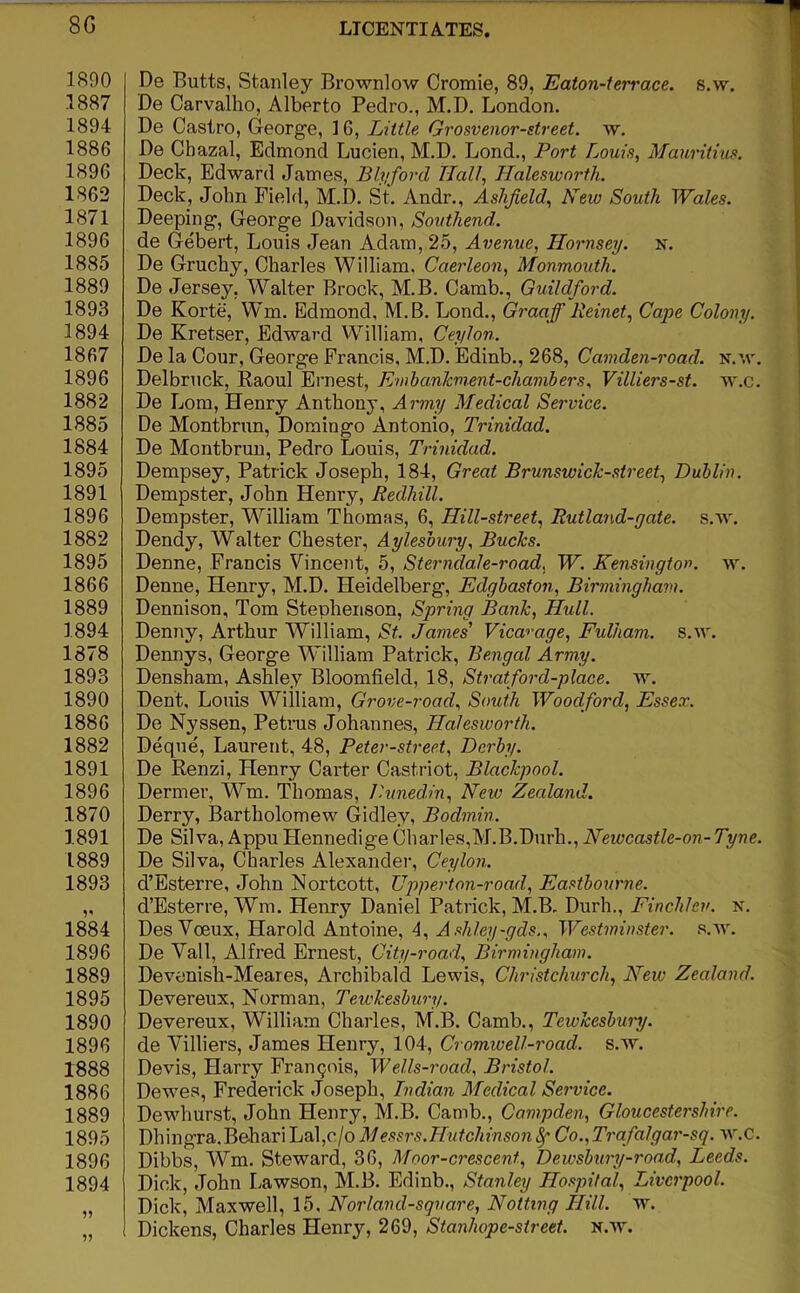 86 LICENTIATES.
1890 De Butts, Stanley Brownlow Cromie, 89, Eaton-terrace. s.w.
1887 De Carvalho, Alberto Pedro., M.D. London.
1894 De Castro, George, 16, Little Grosvenor-street. w.
1886 De Chazal, Edmond Lucien, M.D. Lond., Port Louis, Mauritius.
1896 Deck, Edward James, Blyford Hall, Halesworth.
1862 Deck, John Field, M.D. St. Andr., Ashfield, New South Wales.
1871 Deeping, George Davidson, Southend.
1896 de Gébert, Louis Jean Adam, 25, Avenue, Hornsey. N.
1885 De Gruchy, Charles William, Caerleon, Monmouth.
1889 De Jersey, Walter Brock, M.B. Camb., Guildford.
1893 De Korté, Wm. Edmond, M.B. Lond., Graaff Reinet, Cape Colony.
1894 De Kretser, Edward William, Ceylon.
1867 De la Cour, George Francis, M.D. Edinb., 268, Camden-road. N.W.
1896 Delbruck, Raoul Ernest, Embankment-chambers, Villiers-st. W.C.
1882 De Lom, Henry Anthony, Army Medical Service.
1885 De Montbrun, Domingo Antonio, Trinidad.
1884 De Montbrun, Pedro Louis, Trinidad.
1895 Dempsey, Patrick Joseph, 184, Great Brunswick-street, Dublin.
1891 Dempster, John Henry, Redhill.
1896 Dempster, William Thomas, 6, Hill-street, Rutland-gate. S.W.
1882 Dendy, Walter Chester, Aylesbury, Bucks.
1895 Denne, Francis Vincent, 5, Sterndale-road, W. Kensington. W.
1866 Denne, Henry, M.D. Heidelberg, Edgbaston, Birmingham.
1889 Dennison, Tom Stephenson, Spring Bank, Hull.
1894 Denny, Arthur William, St. James' Vicarage, Fulham. S.W.
1878 Dennys, George William Patrick, Bengal Army.
1893 Densham, Ashley Bloomfield, 18, Stratford-place. W.
1890 Dent, Louis William, Grove-road, South Woodford, Essex.
1886 De Nyssen, Petrus Johannes, Halesworth.
1882 Déqué, Laurent, 48, Peter-street, Derby.
1891 De Renzi, Henry Carter Castriot, Blackpool.
1896 Dermer, Wm. Thomas, Dunedin, New Zealand.
1870 Derry, Bartholomew Gidley, Bodmin.
1891 De Silva, Appu Hennedige Charles, M.B. Durh., Newcastle-on-Tyne.
1889 De Silva, Charles Alexander, Ceylon.
1893 d'Esterre, John Nortcott, Upperton-road, Eastbourne.
„ d'Esterre, Wm. Henry Daniel Patrick, M.B. Durh., Finchley. N.
1884 Des Vœux, Harold Antoine, 4, Ashley-gds., Westminster. S.W.
1896 De Vall, Alfred Ernest, City-road, Birmingham.
1889 Devenish-Meares, Archibald Lewis, Christchurch, New Zealand.
1895 Devereux, Norman, Tewkesbury.
1890 Devereux, William Charles, M.B. Camb., Tewkesbury.
1896 de Villiers, James Henry, 104, Cromwell-road. S.W.
1888 Devis, Harry François, Wells-road, Bristol.
1886 Dewes, Frederick Joseph, Indian Medical Service.
1889 Dewhurst, John Henry, M.B. Camb., Campden, Gloucestershire.
1895 Dhingra, Behari Lal, c/o Messrs. Hutchinson & Co., Trafalgar-sq. W.C.
1896 Dibbs, Wm. Steward, 36, Moor-crescent, Dewsbury-road, Leeds.
1894 Dick, John Lawson, M.B. Edinb., Stanley Hospital, Liverpool.
„ Dick, Maxwell, 15, Norland-square, Notting Hill. W.
„ Dickens, Charles Henry, 269, Stanhope-street. N.W.